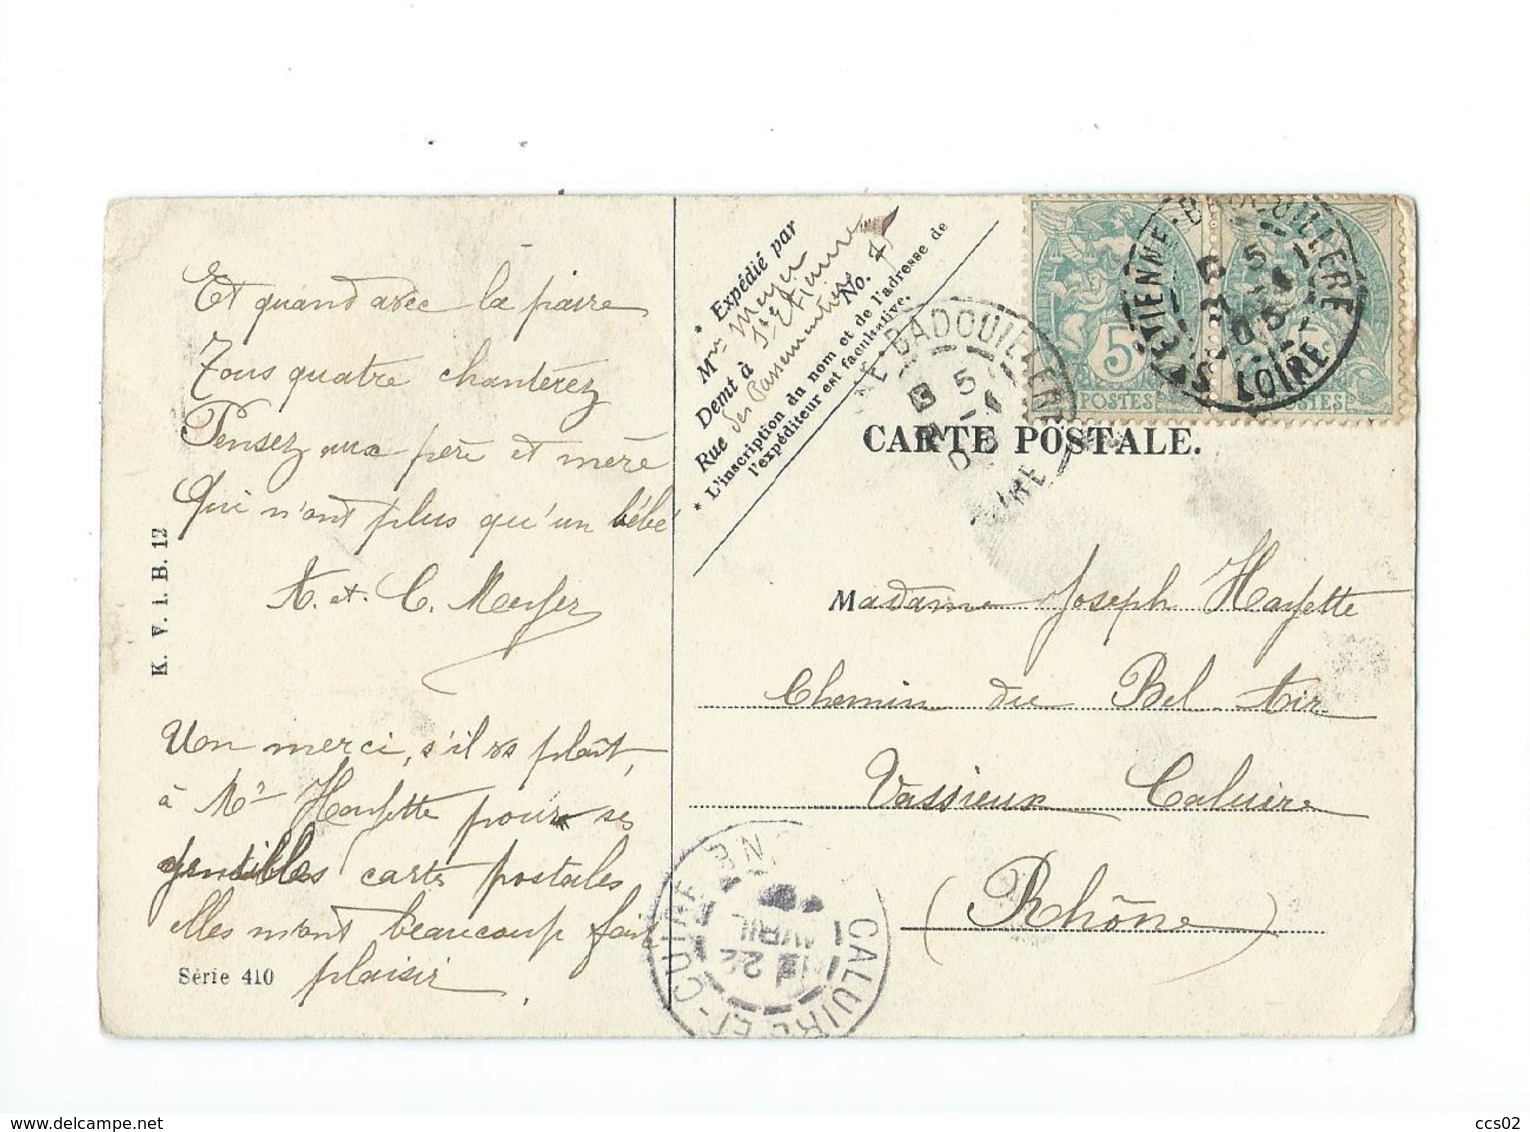 Et quand avec la paire
Tous quatre chanterez
Pensez aux père et mère
Qui n'ont plus qu'un bébé
A. et. C. Meyer
Un merci, s'il vs plaît,
à Mr Hayette pour ses
gentilles cartes postales
elles m'ont beaucoup fait
plaisir.
K. V. i. B. 12
Série 410
* Expédié par
M Meyer
Demt à St Etienne
Rue des Passementiers No. 7
* L'inscription du nom et de l'adresse de
l'expéditeur est facultative.
5
POSTES
POSTES
ST ETIENNE-BADOUILLERE
LOIRE
BADOUILLERE
CARTE POSTALE.
Madame Joseph Hayette
Chemin du Bel-Air
Vassieux Caluire
(Rhône)
CALUIRE-ET-CUIRE
22
AVRIL
ccs02